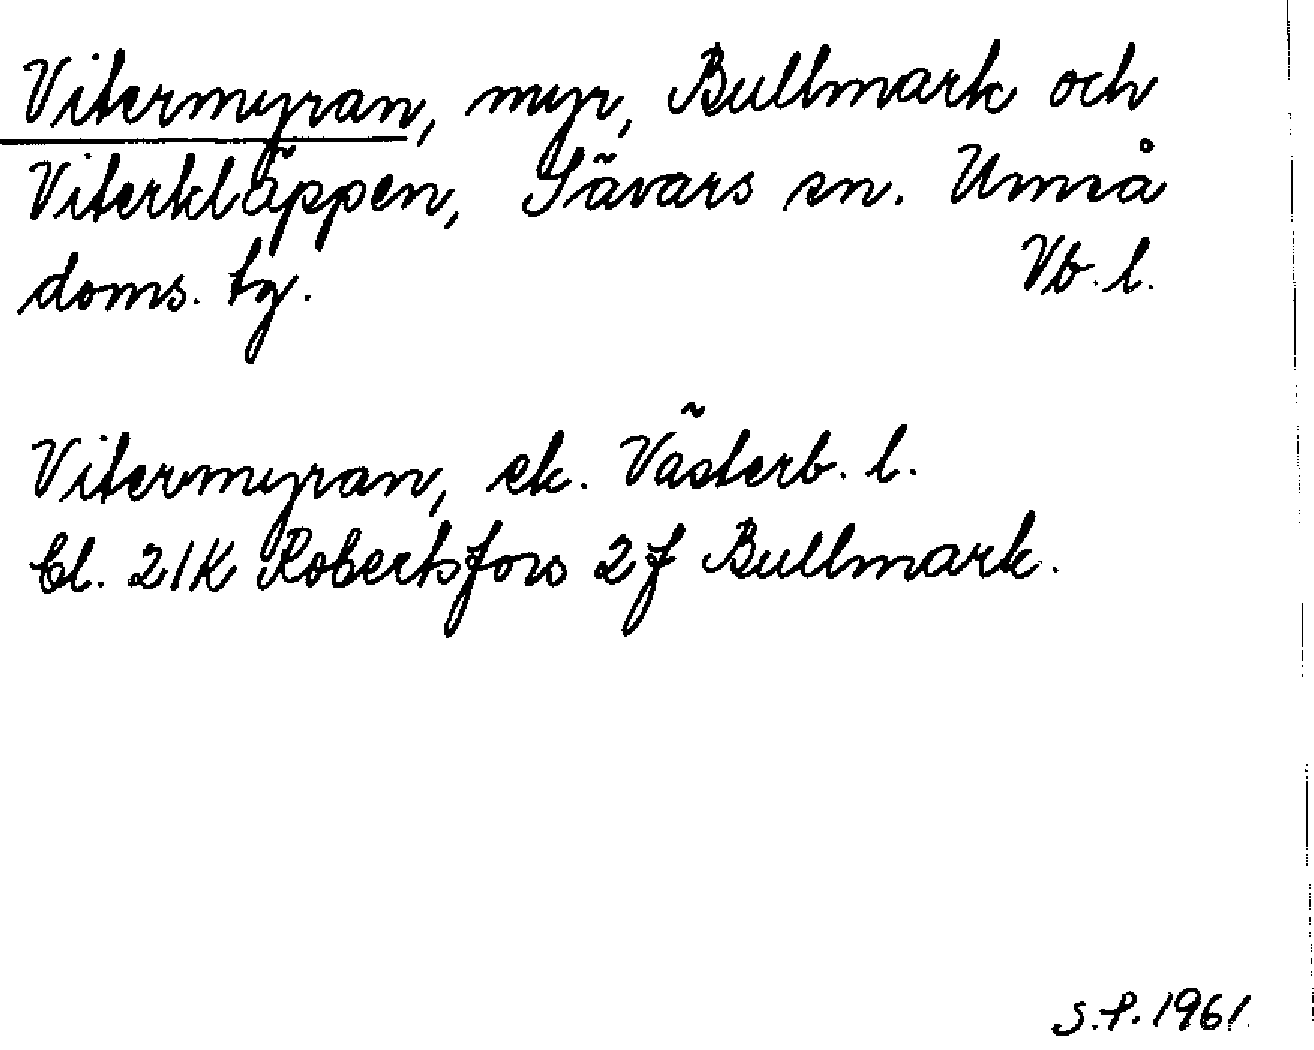 Vitermyran, myr, Bullmark och
Viterkläppen, Sävars sn. Umeå
doms. tg. Vb. l.
Vitermyran, ek. Västerb. l.
Bl. 21K Robertsfors 2f Bullmark.
S.P. 1961